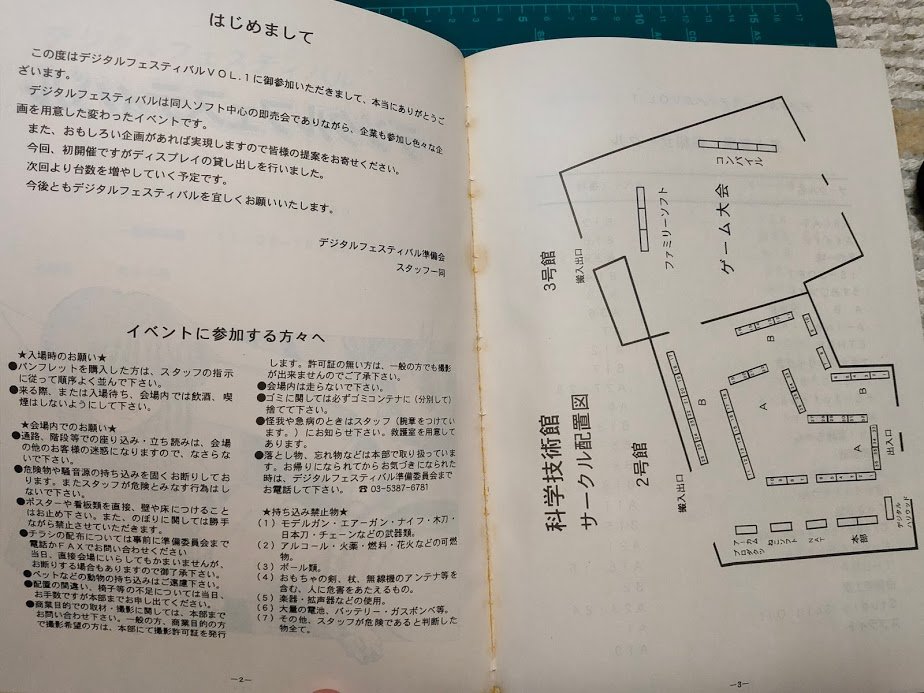 はじめまして
この度はデジタルフェスティバルVOL.1に御参加いただきまして、本当にありがとうご
ざいます。
デジタルフェスティバルは同人ソフト中心の即売会でありながら、企業も参加し色々な企
画を用意した変わったイベントです。
また、おもしろい企画があれば実現しますので皆様の提案をお寄せください。
今回、初開催ですがディスプレイの貸し出しを行いました。
次回より台数を増やしていく予定です。
今後ともデジタルフェスティバルを宜しくお願いいたします。
デジタルフェスティバル準備会
スタッフ一同
イベントに参加する方々へ
★入場時のお願い★
●パンフレットを購入した方は、スタッフの指示
に従って順序よく並んで下さい。
●来る際、または入場待ち、会場内では飲酒、喫
煙はしないようにして下さい。
★会場内でのお願い★
●通路、階段等での座り込み・立ち読みは、会場
の他のお客様の迷惑になりますので、なさらな
いで下さい。
●危険物や騒音源の持ち込みを固くお断りしてお
ります。またスタッフが危険とみなす行為はし
ないで下さい。
●ポスターや看板類を直接、壁や床につけること
はお止め下さい。また、のぼりに関しては勝手
ながら禁止させていただきます。
●チラシの配布については事前に準備委員会まで
電話かFAXでお問い合わせください
当日、直接会場にいらしてもかまいませんが、
お断りする場合もありますので御了承下さい。
●ペットなどの動物の持ち込みはご遠慮下さい。
●配置の間違い、椅子等の不足については当日、
お手数ですが本部までお申し出てください。
●商業目的での取材・撮影に関しては、本部まで
お問い合わせ下さい。一般の方、商業目的の方
で撮影希望の方は、本部にて撮影許可証を発行
します。許可証の無い方は、一般の方でも撮影
が出来ませんのでご了承下さい。
●会場内は走らないで下さい。
●ゴミに関しては必ずゴミコンテナに(分別して)
捨てて下さい。
●怪我や急病のときはスタッフ(腕章をつけてい
ます。)にお知らせ下さい。救護室を用意して
あります。
●落とし物、忘れ物などは本部で取り扱っていま
す。お帰りになられてからお気づきになられた
時は、デジタルフェスティバル準備委員会まで
お電話して下さい。 ☎03-5387-6781
★持ち込み禁止物★
(1)モデルガン・エアーガン・ナイフ・木刀・
日本刀・チェーンなどの武器類。
(2)アルコール・火薬・燃料・花火などの可燃
物。
(3)ポール類。
(4)おもちゃの剣、杖、無線機のアンテナ等を
含む、人に危害をあたえるもの。
(5)楽器・拡声器などの使用。
(6)大量の電池、バッテリー・ガスボンベ等。
(7)その他、スタッフが危険であると判断した
物全て。
—2—
科学技術館
サークル配置図
3号館
搬入出口
ファミリーソフト
コンパイル
ゲーム大会
2号館
搬入出口
B
B
A
A
出入口
本部
デジタル
—3—